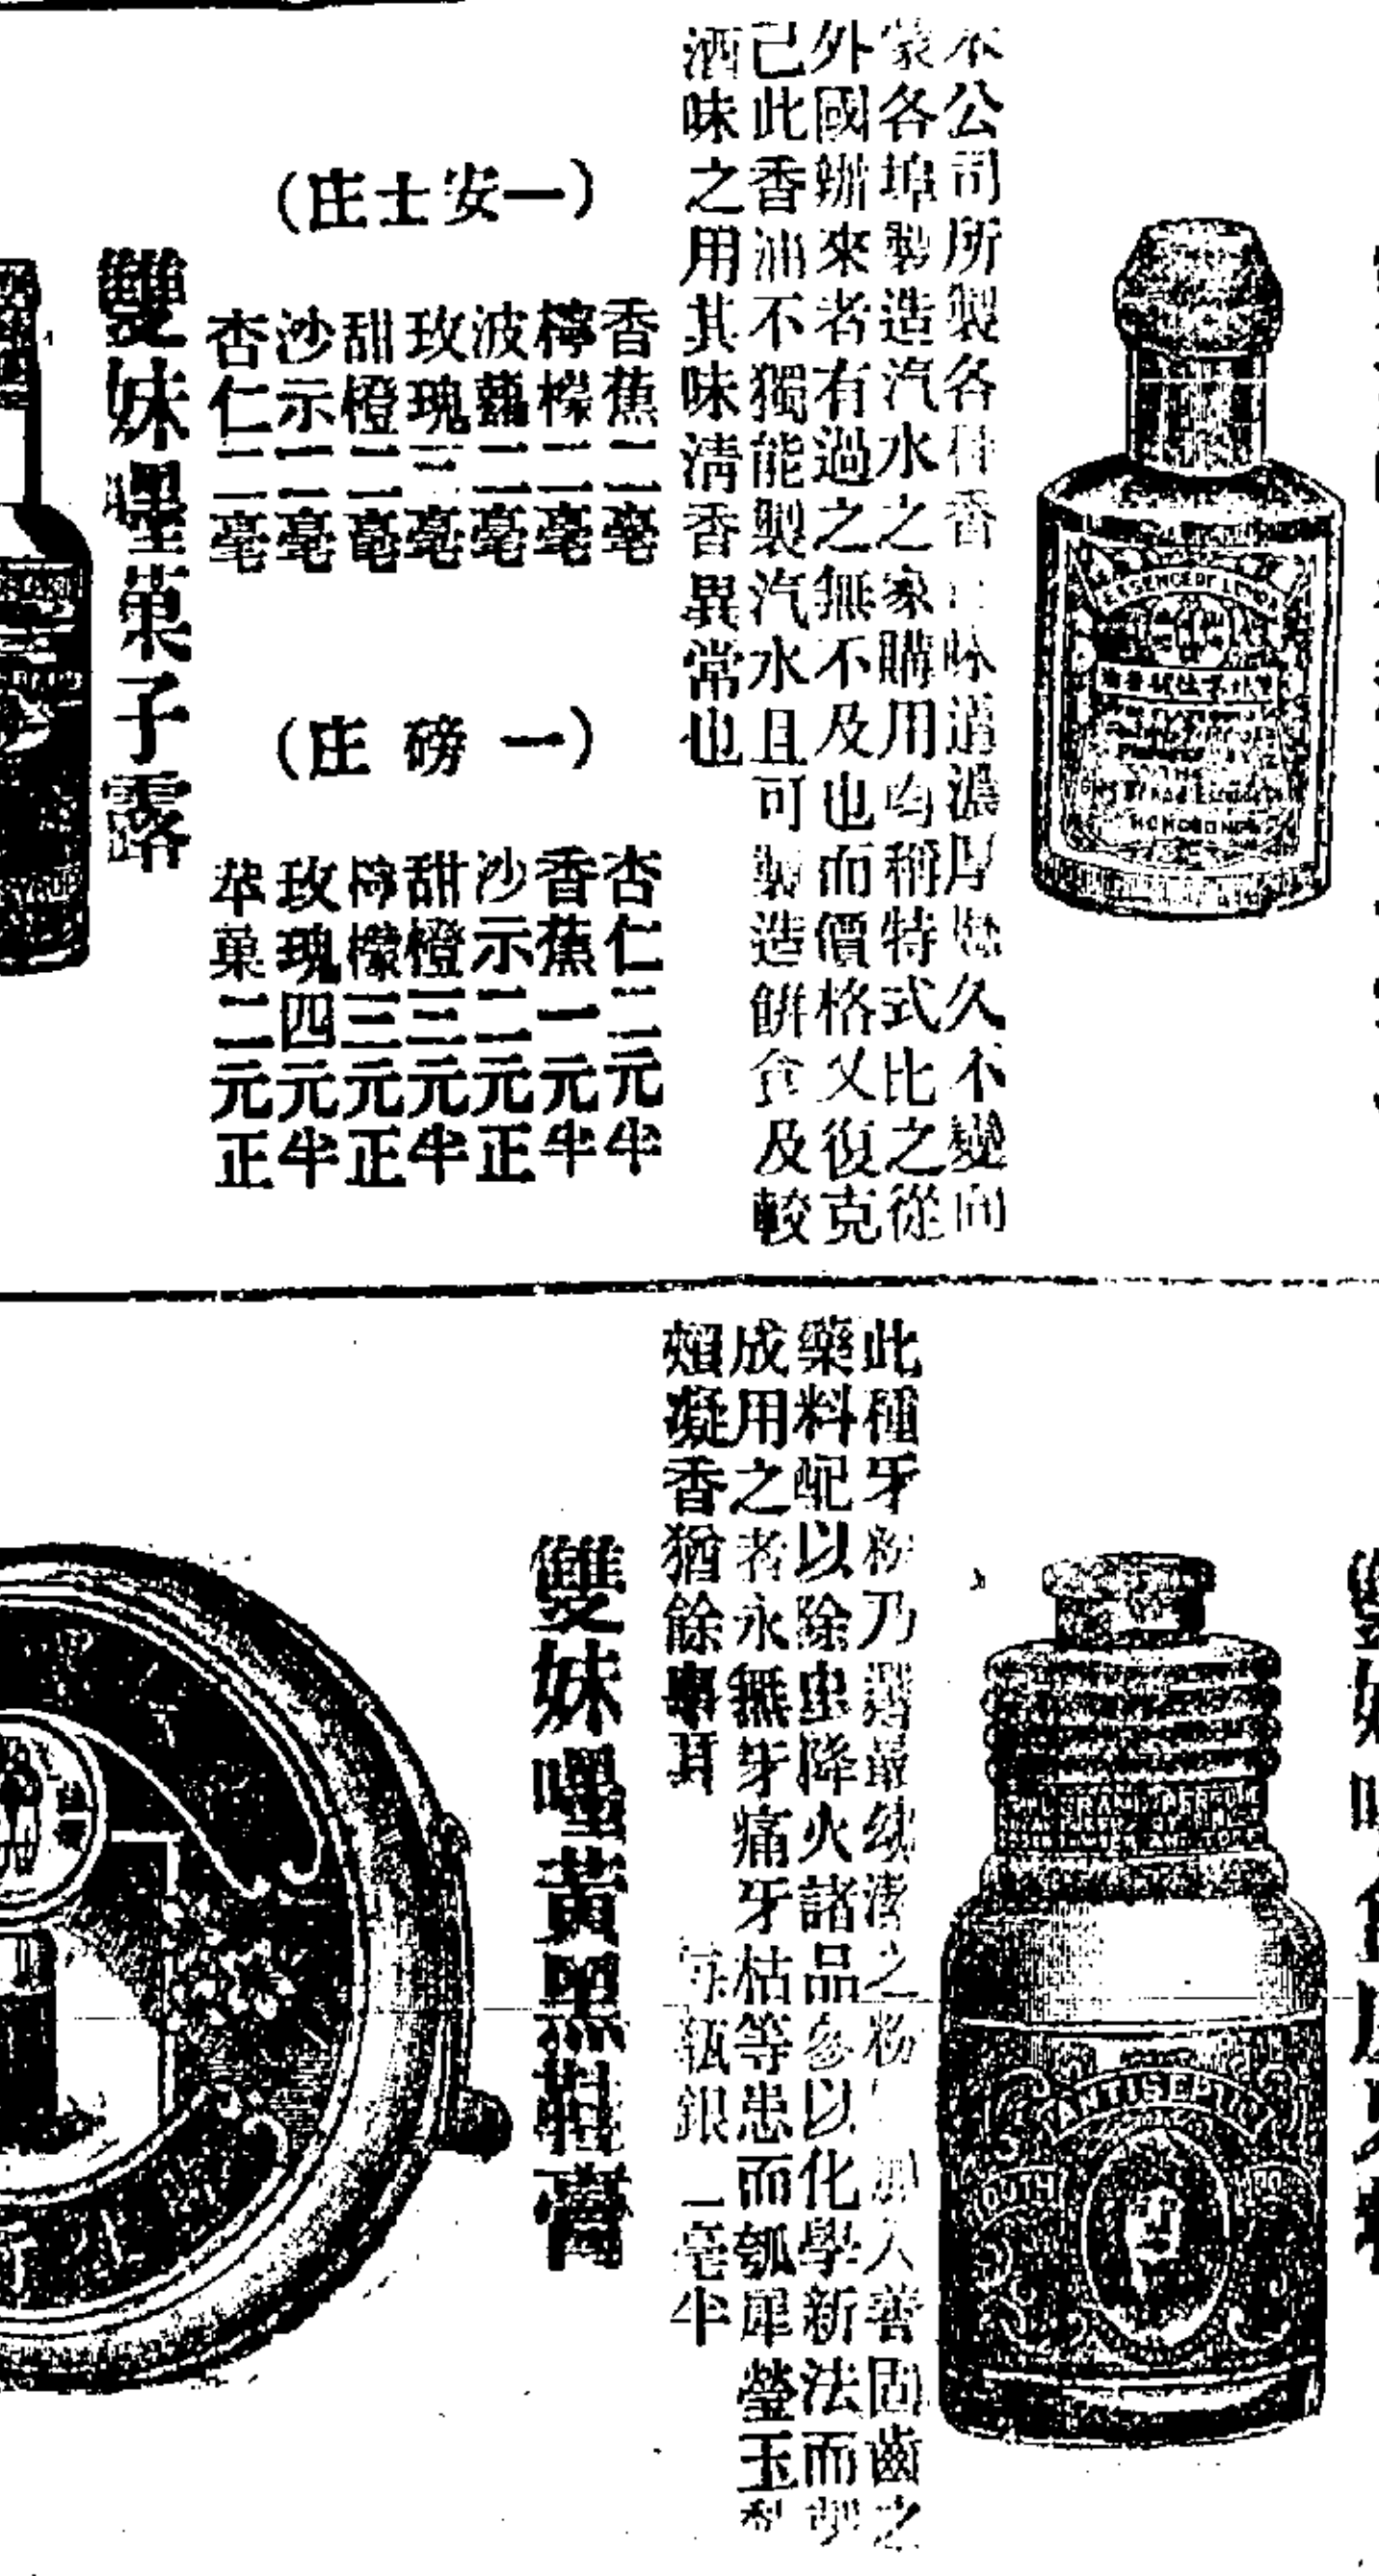 本公司所製各種香油味道濃厚愈久不變向
蒙各埠製造汽水之家購用均稱特式比之從
外國辦來者有過之無不及也而價格又復克
己此香油不獨能製汽水且可製造餅食及較
酒味之用其味清香異常也
(一安士庄)
香蕉二毫
檸檬二毫
波蘿二毫
玫瑰三毫
甜橙二毫
沙示二毫
杏仁二毫
(一磅庄)
杏仁二元半
香蕉一元半
沙示二元正
甜橙三元半
檸檬三元正
玫瑰四元半
苹菓二元正
雙妹嘜菓子露
此種牙粉乃選最幼潔之粉 加入善固齒之
藥料配以除虫降火諸品參以化學新法而製
成用之者永無牙痛牙枯等患而瓠犀瑩玉梨
頰凝香猶餘事耳
每瓶銀一毫半
雙妹嘜黃黑鞋膏
ANTISEPTIC
TOOTH